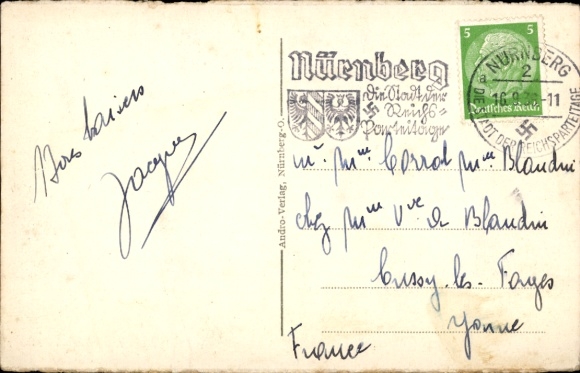 Bons baisers
Jacques
Andro-Verlag, Nürnberg-O.
Nürnberg
die Stadt der
Reichs-
Parteitage
5 5
Deutsches Reich
NÜRNBERG
2
11
DER REICHSPARTEITAGE
M. Mme Corrod Mme Blandin
chez Mme Vve A Blandin
Cussy-les-Forges
Yonne
France